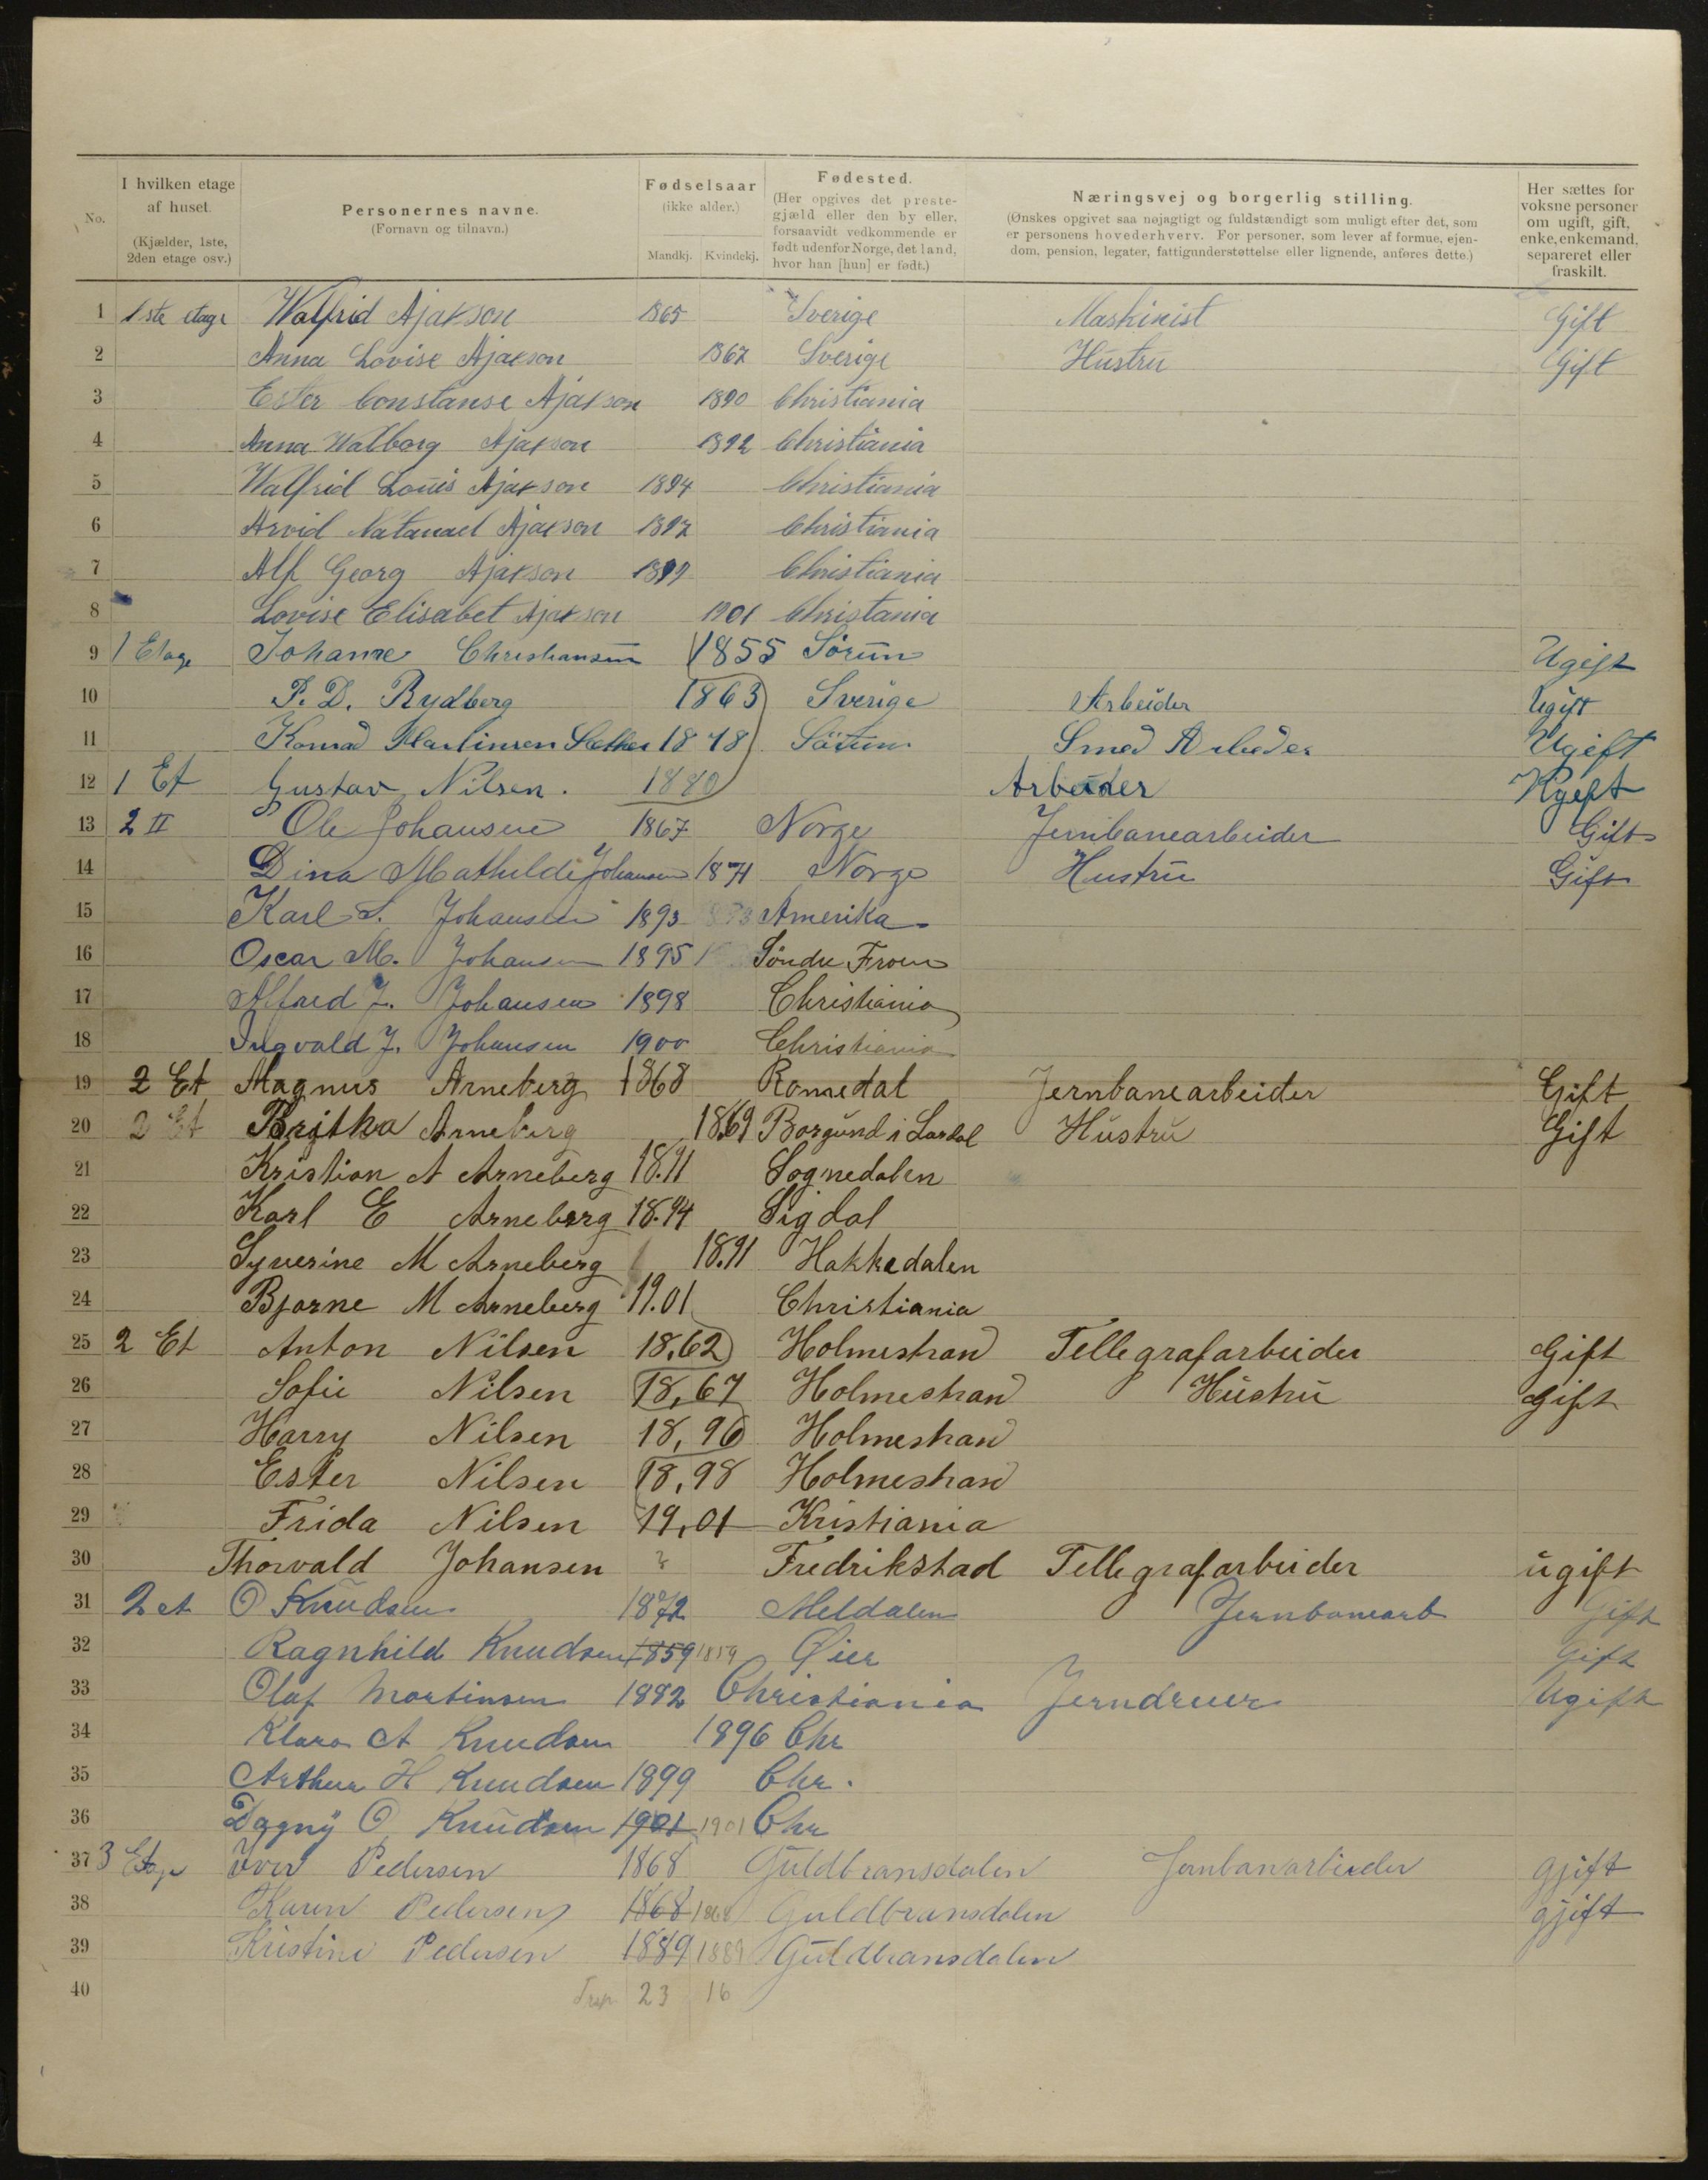 No. I hvilken etage af huset. (Kjælder, 1ste, 2den etage osv.) Personernes navne. (Fornavn og tilnavn.) Fødselsaar (ikke alder.) Mandkj. Kvindekj. Fødested. (Her opgives det prestegjæld eller den by eller, forsaavidt vedkommende er født udenfor Norge, det land, hvor han [hun] er født.) Næringsvej og borgerlig stilling. (Ønskes opgivet saa nøjagtigt og fuldstændigt som muligt efter det, som er personens hovederhverv. For personer, som lever af formue, ejendom, pension, legater, fattigunderstøttelse eller lignende, anføres dette.) Her sættes for voksne personer om ugift, gift, enke, enkemand, separeret eller fraskilt.
1 1ste etage Walfrid Ajakson 1865 Sverige Maskinist Gift
2 Anna Lovise Ajakson 1867 Sverige Hustru Gift
3 Ester Constanse Ajakson 1890 Christiania
4 Anna Walborg Ajakson 1892 Christiania
5 Walfrid Louis Ajakson 1894 Christiania
6 Arvid Natanael Ajakson 1897 Christiania
7 Alf Georg Ajakson 1899 Christiania
8 Lovise Elisabet Ajakson 1901 Christania
9 1 Etage Johanne Christiansen 1855 Sörum Ugift
10 P. D. Rydberg 1863 Sverige Arbeider Ugift
11 Konrad Martinsen 1878 Smed Arbeder Ugift
12 1 Et Gustav Nilsen. 1880 Arbeider
13 2 Ole Johansen 1867 Norge Jernbanearbeider Gift
14 Dina Mathilde Johansen 1871 Norge Hustru Gift
15 Karl S. Johansen 1893 Amerika
16 Oscar M. Johansen 1895 Söndre Fron
17 Alfred J. Johansen 1898 Christiania
18 Ingvald J. Johansen 1900 Christiania
19 2 Et Magnus Arneberg 1868 Romedal Jernbanearbeider Gift
20 2 Et Britha Arneberg 1869 Borgund i Lardal Hustru Gift
21 Kristian A Arneberg 18.91 Sognedalen
22 Karl E Arneberg 18.94 Sigdal
23 Syverine M Arneberg 18.91 Hakkedalen
24 Bjarne M Arneberg 19.01 Christiania
25 2 Et Anton Nilsen 18,62 Holmestrand Tellegrafarbeider Gift
26 Sofie Nilsen 18,67 Holmestrand Hustru Gift
27 Harry Nilsen 18,96 Holmestrand
28 Ester Nilsen 18,98 Holmestrand
29 Frida Nilsen 19,01 Kristiania
30 Thorvald Johansen ? Fredrikstad Tellegrafarbeider ugift
31 2 et O Knudsen 1872 Meldalen Jernbanearb Gift
32 Ragnhild Knudsen 1859 1859 Øier Gift
33 Olaf Martinsen 1882 Christiania Jerndreier Ugift
34 Klara A Knudsen 1896 Chr
35 Arthur H Knudsen 1899 Chr.
36 Dagny O Knudsen 1901 1901 Chr
37 3 Etage Iver Pedersen 1868 Guldbransdalen Jernbanarbeider gjift
38 Karen Pedersen 1868 1868 Guldbransdalen gjift
39 Kristine Pedersen 1889 1889 Guldbransdalen
40 23 16